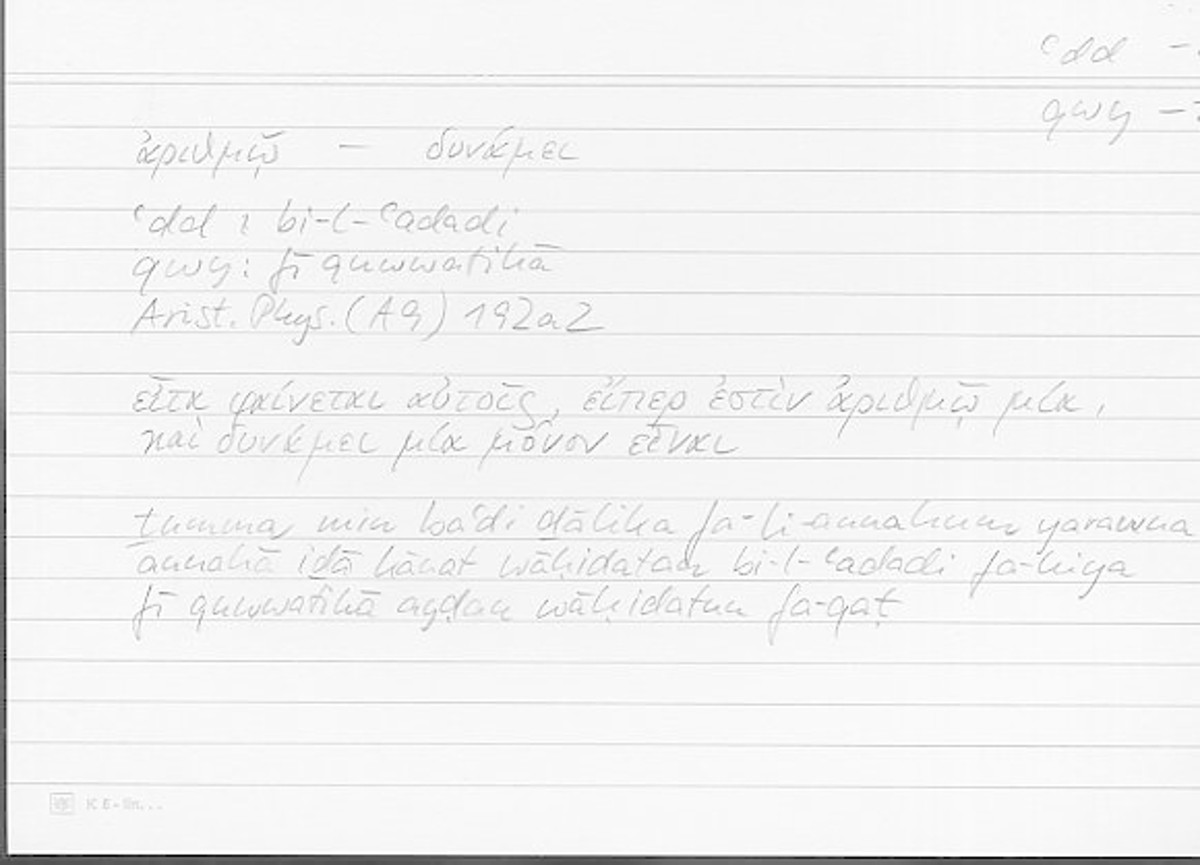 ʿdd —
qwy —
ἀριθμῷ — δυνάμει
ʿdd : bi-l-ʿadadi
qwy : fī quwwatihā
Arist. Phys. (A9) 192a2
εἶτα φαίνεται αὐτοῖς, εἴπερ ἐστὶν ἀριθμῷ μία,
καὶ δυνάμει μία μόνον εἶναι
ṯumma min baʿdi ḏālika fa-li-annahum yarawna
annahā iḏā kānat wāḥidatan bi-l-ʿadadi fa-hiya
fī quwwatihā ayḍan wāḥidatun fa-qaṭ